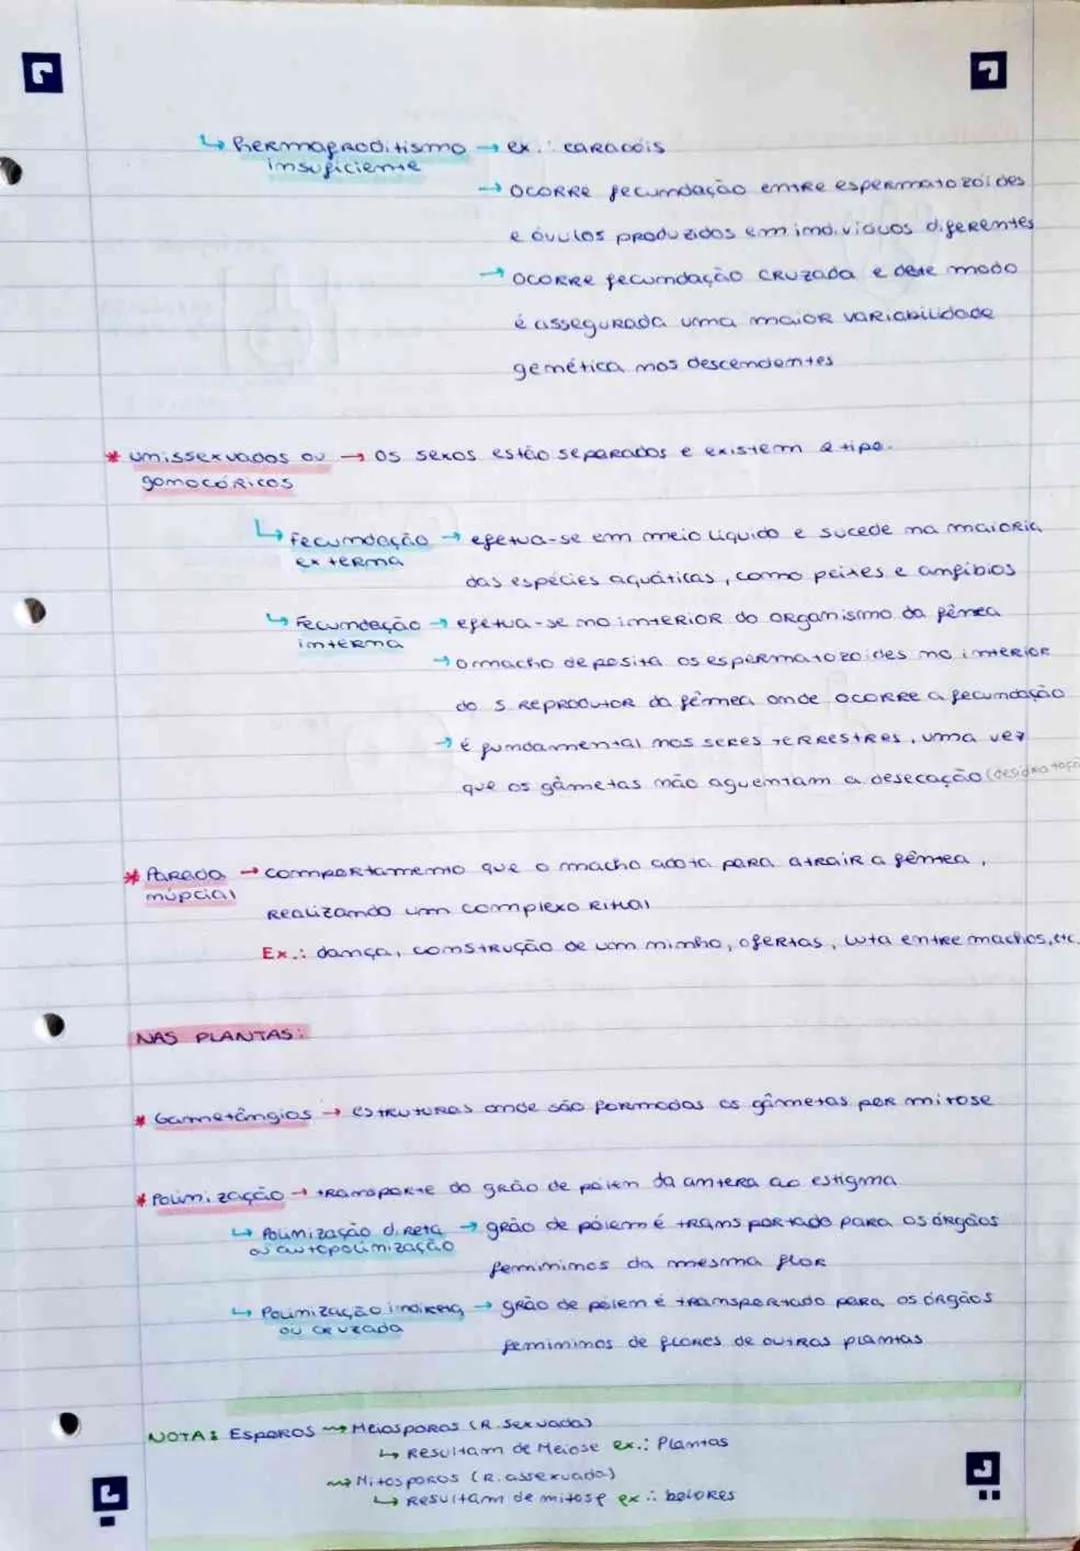 ↳ hermafroditismo → ex.: caracóis
insuficiente
→ ocorre fecundação entre espermatozoides
e óvulos produzidos em indivíduos diferentes
→ ocorre fecundação cruzada e deste modo
é assegurada uma maior variabilidade
genética nos descendentes
* unissexuados ou → os sexos estão separados e existem 2 tipo.
gonocóricos
↳ fecundação → efetua-se em meio líquido e sucede na maioria
externa
das espécies aquáticas, como peixes e anfíbios
↳ Fecundação → efetua-se no interior do organismo da fêmea
interna
→ o macho deposita os espermatozoides no interior
do s reprodutor da fêmea onde ocorre a fecundação
→ é fundamental nos seres terrestres, uma vez
que os gâmetas não aguentam a desecação (desidratação
* Parada → comportamento que o macho adota para atrair a fêmea,
núpcial
realizando um complexo ritual
Ex.: dança, construção de um ninho, ofertas, luta entre machos, etc.
NAS PLANTAS:
* Gametângios → estruturas onde são formados os gâmetas por mitose
* Polinização → transporte do grão de pólen da antera ao estigma
↳ Polinização direta → grão de pólen é transportado para os órgãos
ou autopolinização
femininos da mesma flor
↳ Polinização indireta → grão de pólen é transportado para os órgãos
ou cruzada
femininos de flores de outras plantas
NOTA: Esporos → Meiosporos (R. sexuada)
↳ Resultam de Meiose ex.: Plantas
→ Mitosporos (R. assexuada)
↳ Resultam de mitose ex.: bolores